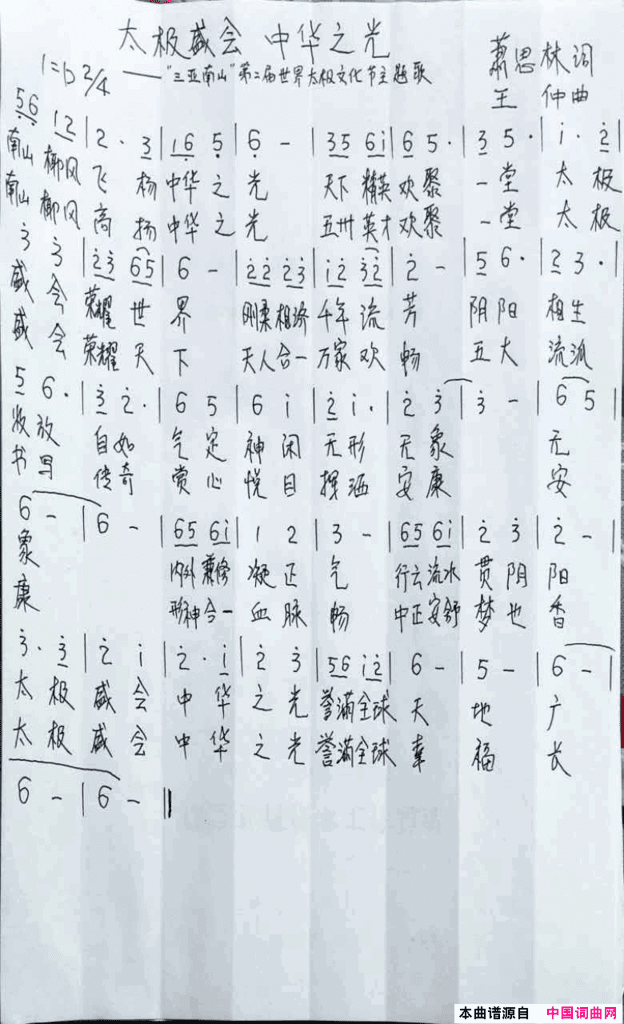 太极盛会 中华之光
1=D 2/4 ——"三亚南山"第二届世界太极文化节主题歌
萧思林词
王 仲曲
56 12 | 2· 3 | 16 5 | 6 - | 35 6i | 65· | 35· | i· 2 |
南山 椰风 飞 杨 中华 之 光 天下 精英 欢聚 一堂 太 极
南山 椰风 高 扬 中华 之 光 五卅 英才 欢聚 一堂 太 极
3 3 | 23 65 | 6 - | 22 23 | i2 32 | 2 - | 5 6· | 23· |
盛 会 荣耀 世 界 刚柔 相济 千年 流 芳 阴阳 相生
盛 会 荣耀 天 下 天人 合一 万家 欢 畅 五大 流派
5 6· | 3 2· | 6 5 | 6 i | 2 i· | 2 3 | 3 - | 6 5
收放 自如 气 定 神 闲 无形 无 象 无
书写 传奇 赏 心 悦 目 挥洒 安 康 安
6 - | 6 - | 65 6i | 1 2 | 3 - | 65 6i | 2 3 | 2 - |
象 内外 兼修 凝 正 气 行云 流水 贯 阴 阳
康 形神 合一 血 脉 畅 中正 安舒 梦 也 香
3· 3 | 2 i | 2· i | 2 3 | 56 i2 | 6 - | 5 - | 6 - |
太 极 盛 会 中 华 之 光 誉满 全球 天 地 广
太 极 盛 会 中 华 之 光 誉满 全球 幸 福 长
6 - | 6 - ‖
本曲谱源自 中国词曲网